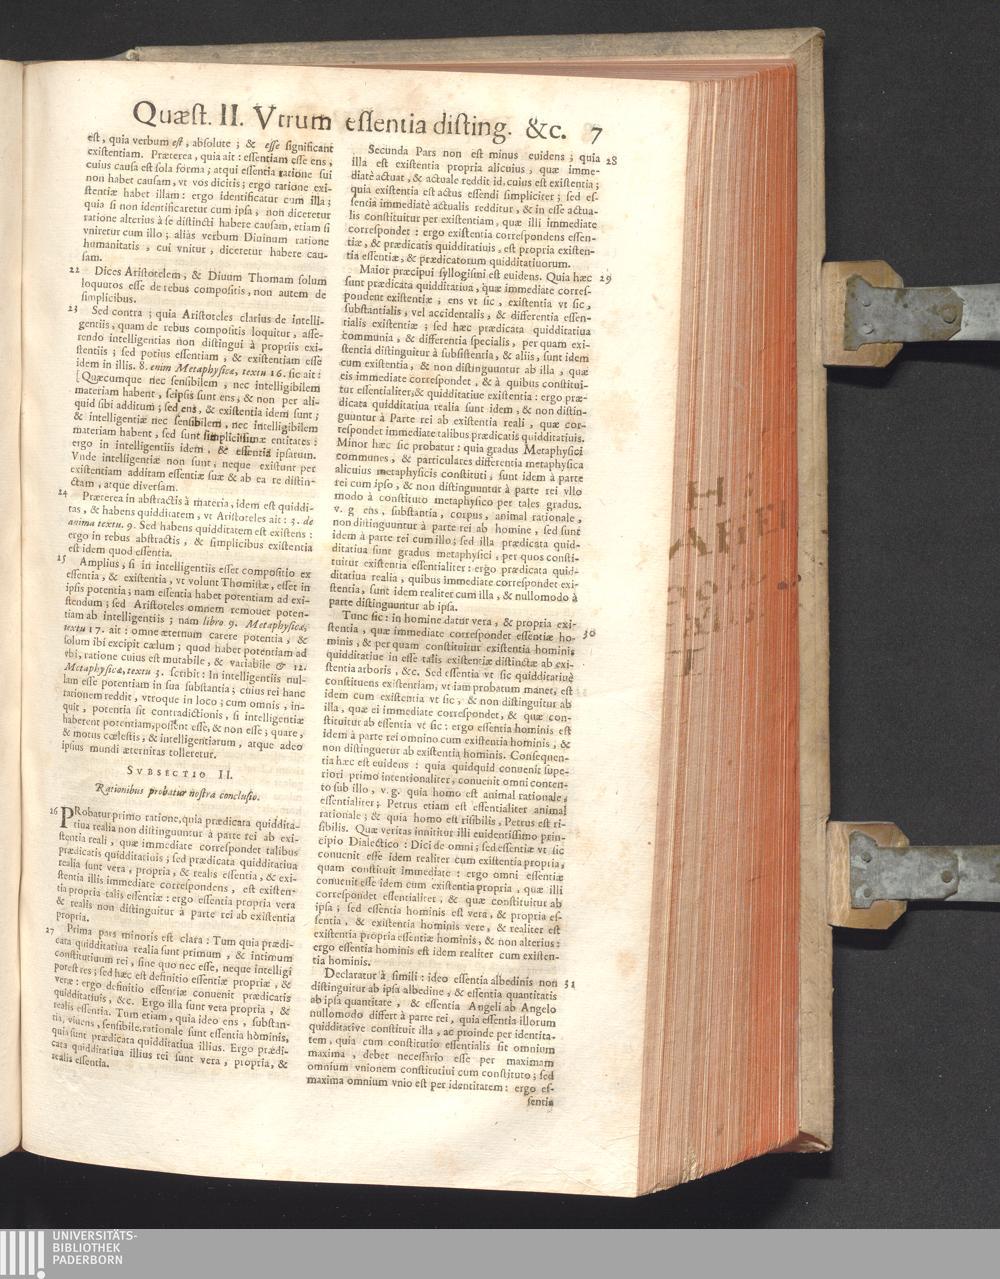 Quæst. II. Vtrum essentia disting. &c. 7
est, quia verbum est, absolute ; & esse significant
existentiam. Præterea, quia ait : essentiam esse ens,
cuius causa est sola forma ; atqui essentia ratione sui
non habet causam, vt vos dicitis ; ergo ratione exi-
stentiæ habet illam : ergo identificatur cum illa ;
quia si non identificaretur cum ipsa, non diceretur
ratione alterius à se distincti habere causam, etiam si
vniretur cum illo ; aliàs verbum Diuinum ratione
humanitatis, cui vnitur, diceretur habere cau-
sam.
22 Dices Aristotelem, & Diuum Thomam solum
loquutos esse de rebus compositis, non autem de
simplicibus.
23 Sed contra ; quia Aristoteles clarius de intelli-
gentiis, quam de rebus compositis loquitur, asse-
rendo intelligentias non distingui à propriis exi-
stentiis ; sed potius essentiam, & existentiam esse
idem in illis. 8. enim Metaphysicæ, textu 16. sic ait :
[Quæcumque nec sensibilem, nec intelligibilem
materiam habent, seipsis sunt ens, & non per ali-
quid sibi additum ; sed ens, & existentia idem sunt ;
& intelligentiæ nec sensibilem, nec intelligibilem
materiam habent, sed sunt simplicissimæ entitates :
ergo in intelligentiis idem, & essentia ipsarum.
Vnde intelligentiæ non sunt, neque existunt per
existentiam additam essentiæ suæ & ab ea re distin-
ctam, atque diuersam.
24 Præterea in abstractis à materia, idem est quiddi-
tas, & habens quidditatem, vt Aristoteles ait : 3. de
anima textu. 9. Sed habens quidditatem est existens :
ergo in rebus abstractis, & simplicibus existentia
est idem quod essentia.
25 Amplius, si in intelligentiis esset compositio ex
essentia, & existentia, vt volunt Thomistæ, esset in
ipsis potentia ; nam essentia habet potentiam ad exi-
stendum ; sed Aristoteles omnem remouet poten-
tiam ab intelligentiis ; nam libro 9. Metaphysicæ,
textu 17. ait : omne æternum carere potentia, &
solum ibi excipit cælum ; quod habet potentiam ad
vbi, ratione cuius est mutabile, & variabile & 12.
Metaphysicæ, textu 3. scribit : In intelligentiis nul-
lam esse potentiam in sua substantia ; cuius rei hanc
rationem reddit, vtroque in loco ; cum omnis, in-
quit, potentia sit contradictionis, si intelligentiæ
haberent potentiam, possent esse, & non esse ; quare,
& motus cœlestis, & intelligentiarum, atque adeo
ipsius mundi æternitas tolleretur.
SVBSECTIO II.
Rationibus probatur nostra conclusio.
26 PRobatur primo ratione, quia prædicata quiddita-
tiua realia non distinguuntur à parte rei ab exi-
stentia reali, quæ immediate correspondet talibus
prædicatis quidditatiuis ; sed prædicata quidditatiua
realia sunt vera, propria, & realis essentia, & exi-
stentia illis immediate correspondens, est existen-
tia propria talis essentiæ : ergo essentia propria vera
& realis non distinguitur à parte rei ab existentia
propria.
27 Prima pars minoris est clara : Tum quia prædi-
cata quidditatiua realia sunt primum, & intimum
constitutiuum rei, sine quo nec esse, neque intelligi
potest res ; sed hæc est definitio essentiæ propriæ, &
veræ : ergo definitio essentiæ conuenit prædicatis
quidditatiuis, &c. Ergo illa sunt vera propria, &
realis essentia. Tum etiam, quia ideo ens, substan-
tia, viuens, sensibile, rationale sunt essentia hominis,
quia sunt prædicata quidditatiua illius. Ergo prædi-
cata quidditatiua illius rei sunt vera, propria, &
realis essentia.
Secunda Pars non est minus euidens ; quia 28
illa est existentia propria alicuius, quæ imme-
diatè actuat, & actuale reddit id, cuius est existentia ;
quia existentia est actus essendi simpliciter ; sed es-
sentia immediatè actualis redditur, & in esse actua-
lis constituitur per existentiam, quæ illi immediate
correspondet : ergo existentia correspondens essen-
tiæ, & prædicatis quidditatiuis, est propria existen-
tia essentiæ, & prædicatorum quidditatiuorum.
Maior præcipui syllogismi est euidens. Quia hæc 29
sunt prædicata quidditatiua, quæ immediate corres-
pondent existentiæ ; ens vt sic, existentia vt sic,
substantialis, vel accidentalis, & differentia essen-
tialis existentiæ ; sed hæc prædicata quidditatiua
communia, & differentia specialis, per quam exi-
stentia distinguitur à subsistentia, & aliis, sunt idem
cum existentia, & non distinguuntur ab illa, quæ
eis immediate correspondet, & à quibus constitui-
tur essentialiter, & quidditatiue existentia : ergo præ-
dicata quidditatiua realia sunt idem, & non distin-
guuntur à Parte rei ab existentia reali, quæ cor-
respondet immediate talibus prædicatis quidditatiuis.
Minor hæc sic probatur : quia gradus Metaphysici
communes, & particulares differentia metaphysica
alicuius metaphysicis constituti, sunt idem à parte
rei cum ipso, & non distinguuntur à parte rei vllo
modo à constituto metaphysico per tales gradus.
v. g ens, substantia, corpus, animal rationale,
non distinguuntur à parte rei ab homine, sed sunt
idem à parte rei cum illo ; sed illa prædicata quid-
ditatiua sunt gradus metaphysici, per quos consti-
tuitur existentia essentialiter : ergo prædicata quid-
ditatiua realia, quibus immediate correspondet exi-
stentia, sunt idem realiter cum illa, & nullomodo à
parte distinguuntur ab ipsa.
Tunc sic : in homine datur vera, & propria exi- 30
stentia, quæ immediate correspondet essentiæ ho-
minis, & per quam constituitur existentia hominis
quidditatiue in esse talis existentiæ distinctæ ab exi-
stentia arboris, &c. Sed essentia vt sic quidditatiuè
constituens existentiam, vt iam probatum manet, est
idem cum existentia vt sic, & non distinguitur ab
illa, quæ ei immediate correspondet, & quæ con-
stituitur ab essentia vt sic : ergo essentia hominis est
idem à parte rei omnino cum existentia hominis, &
non distinguetur ab existentia hominis. Consequen-
tia hæc est euidens : quia quidquid conuenit supe-
riori primo intentionaliter, conuenit omni conten-
to sub illo, v. g. quia homo est animal rationale,
essentialiter ; Petrus etiam est essentialiter animal
rationale ; & quia homo est risibilis, Petrus est ri-
sibilis. Quæ veritas innititur illi euidentissimo prin-
cipio Dialectico : Dici de omni ; sed essentiæ vt sic
conuenit esse idem realiter cum existentia propria,
quam constituit immediate : ergo omni essentiæ
conuenit esse idem cum existentia propria, quæ illi
correspondet essentialiter, & quæ constituitur ab
ipsa ; sed essentia hominis est vera, & propria es-
sentia, & existentia hominis vere, & realiter est
existentia propria essentiæ hominis, & non alterius :
ergo essentia hominis est idem realiter cum existen-
tia hominis.
Declaratur à simili : ideo essentia albedinis non 31
distinguitur ab ipsa albedine, & essentia quantitatis
ab ipsa quantitate, & essentia Angeli ab Angelo
nullomodo differt à parte rei, quia essentia illorum
quidditative constituit illa, ac proinde per identita-
tem, quia cum constitutio essentialis sit omnium
maxima, debet necessario esse per maximam
omnium vnionem constitutiui cum constituto ; sed
maxima omnium vnio est per identitatem : ergo es-
sentia
UNIVERSITÄTS-
BIBLIOTHEK
PADERBORN